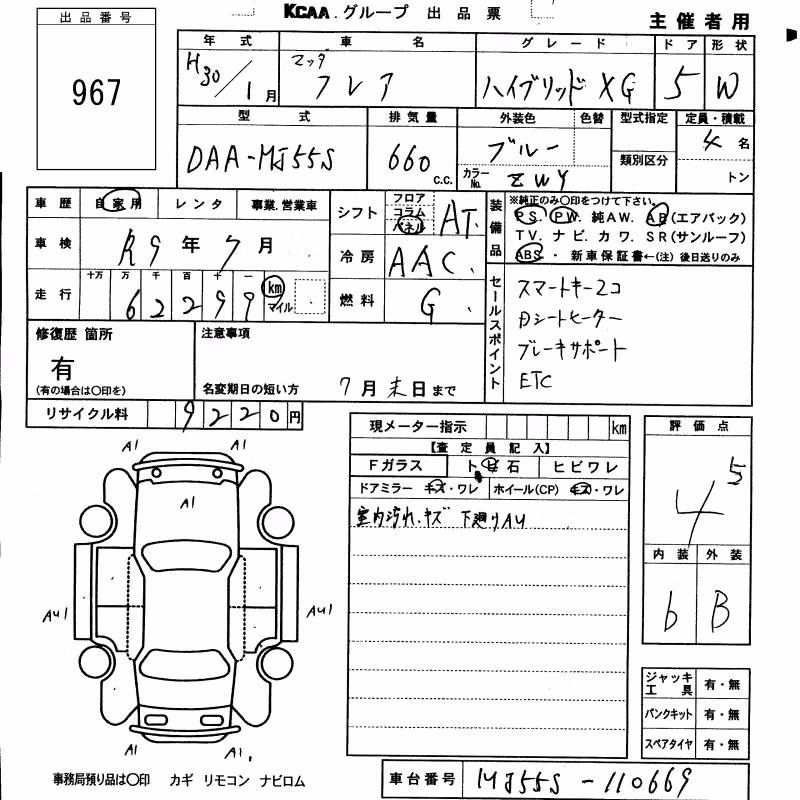 KCAA.グループ 出品票
主催者用
出品番号
967
年式 車名 グレード ドア 形状
H30/1月 マツダ フレア ハイブリッド XG 5 W
型式 排気量 外装色 色替 型式指定 定員・積載
DAA-MJ55S 660 c.c. ブルー 4名
カラーNo. ZWY 類別区分 トン
車歴 自家用 レンタ 事業.営業車
シフト フロア コラム パネル AT.
装備品 ※純正のみ〇印をつけて下さい。
PS. PW. 純AW. AB(エアバック)
TV. ナビ. カワ. SR(サンルーフ)
ABS. 新車保証書←(注)後日送りのみ
車検 R9年7月
冷房 AAC.
走行 十万 万 千 百 十 一
62299 km マイル
燃料 G.
セールスポイント
スマートキー2コ
Dシートヒーター
ブレーキサポート
ETC
修復歴 箇所
有
(有の場合は〇印を)
注意事項
名変期日の短い方 7月末日まで
リサイクル料 9220円
現メーター指示 km
【査定員記入】
Fガラス ト ビ 石 ヒビワレ
ドアミラー キズ・ワレ ホイール(CP) キズ・ワレ
室内汚れ.キズ 下廻りAU
評価点
4 5
内装 外装
b B
A1 A1
A1
AU1 AU1
A1 A1.
ジャッキ工具 有・無
パンクキット 有・無
スペアタイヤ 有・無
事務局預り品は〇印 カギ リモコン ナビロム
車台番号 MJ55S-110669